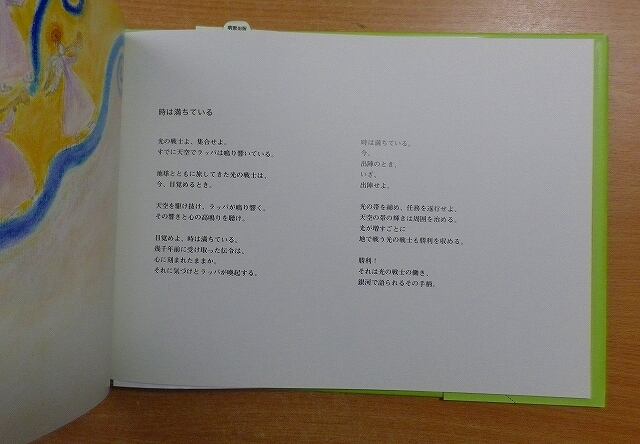 時は満ちている
光の戦士よ、集合せよ。
すでに天空でラッパは鳴り響いている。
地球とともに旅してきた光の戦士は、
今、目覚めるとき。
天空を駆け抜け、ラッパが鳴り響く。
その響きと心の高鳴りを聴け。
目覚めよ、時は満ちている。
幾千年前に受け取った伝令は、
心に刻まれたままか。
それに気づけとラッパが喚起する。
時は満ちている。
今、
出陣のとき。
いざ、
出陣せよ。
光の帯を締め、任務を遂行せよ。
天空の帯の輝きは周囲を治める。
光が増すごとに
地で戦う光の戦士も勝利を収める。
勝利！
それは光の戦士の働き、
銀河で語られるその手柄。